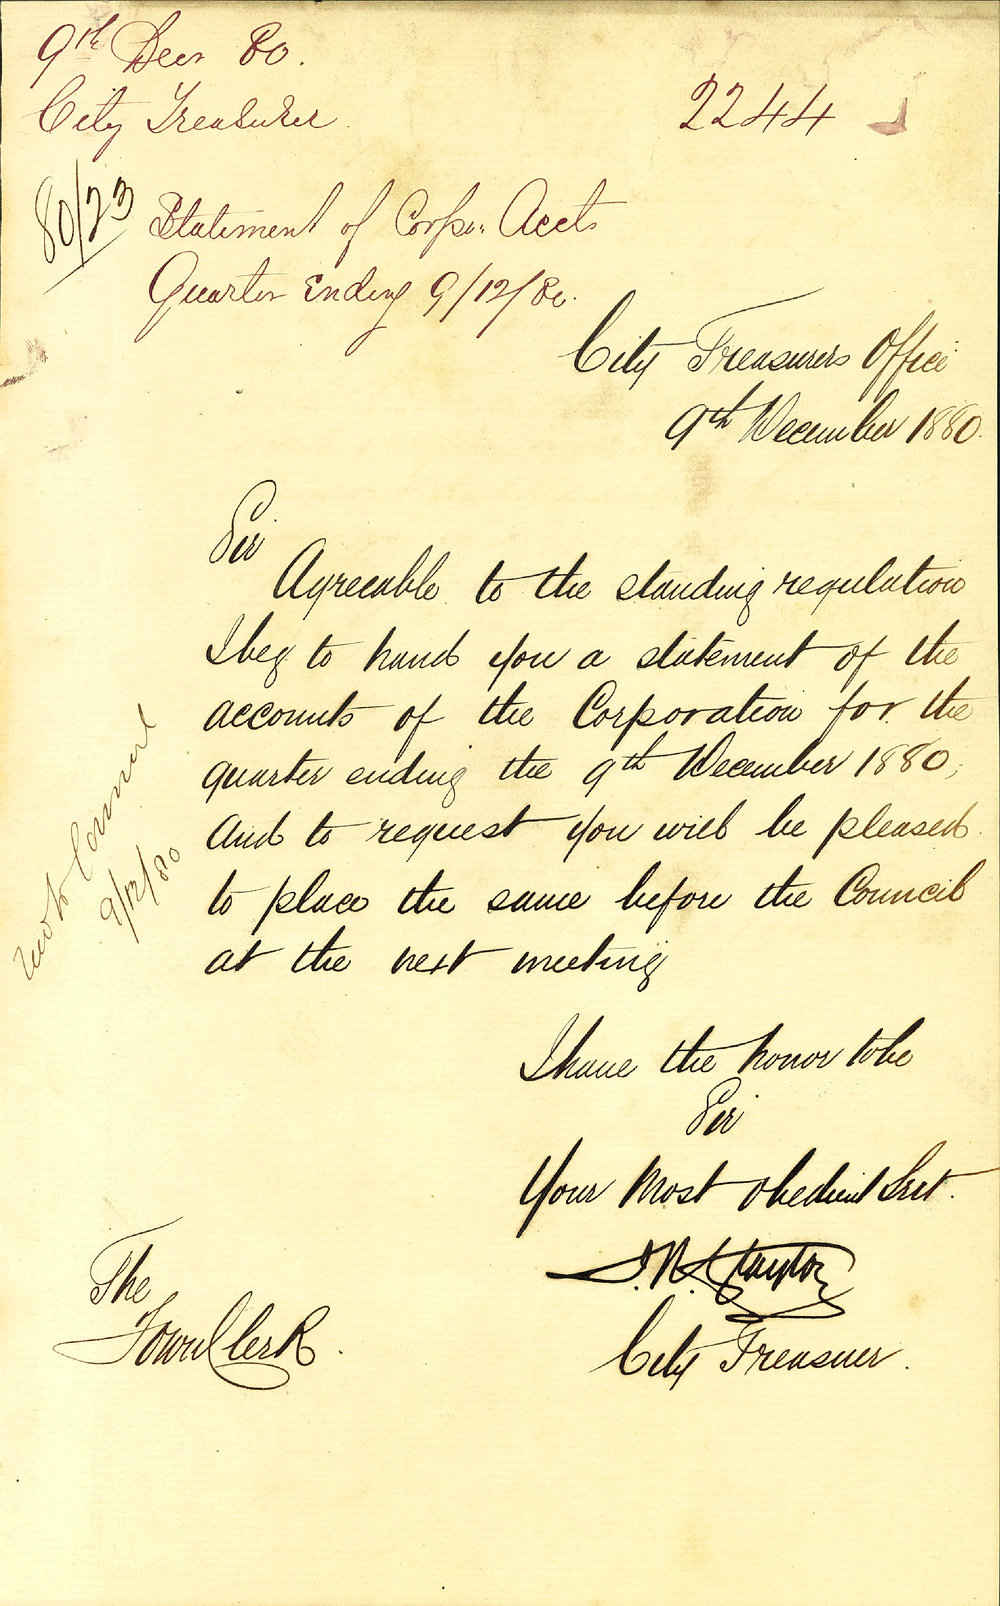 9th Decr 80.
City Treasurer
2244
80/23
Statement of Corpn. Accts
Quarter Ending 9/12/80.
City Treasurers Office
9th December 1880.
Sir
Agreeable to the standing regulation
I beg to hand you a statement of the
accounts of the Corporation for the
quarter ending the 9th December 1880,
And to request you will be pleased
to place the same before the Council
at the next meeting
to Council
9/12/80
I have the honor to be
Sir
Your Most Obedient Svt.
Taylor
City Treasurer.
The
Town Clerk.